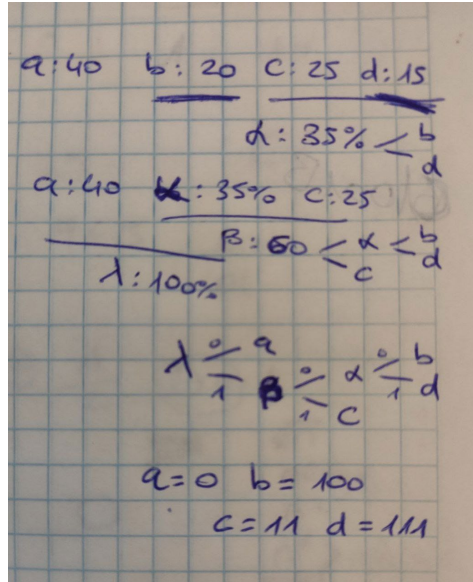 a:40 b: 20 c: 25 d:15
α: 35% < b
d
a:40 α: 35% c:25
β: 60 < α < b
c d
λ: 100%
λ 0 a
1 β 0 α 0 b
1 c 1 d
a=0 b= 100
c=11 d=111